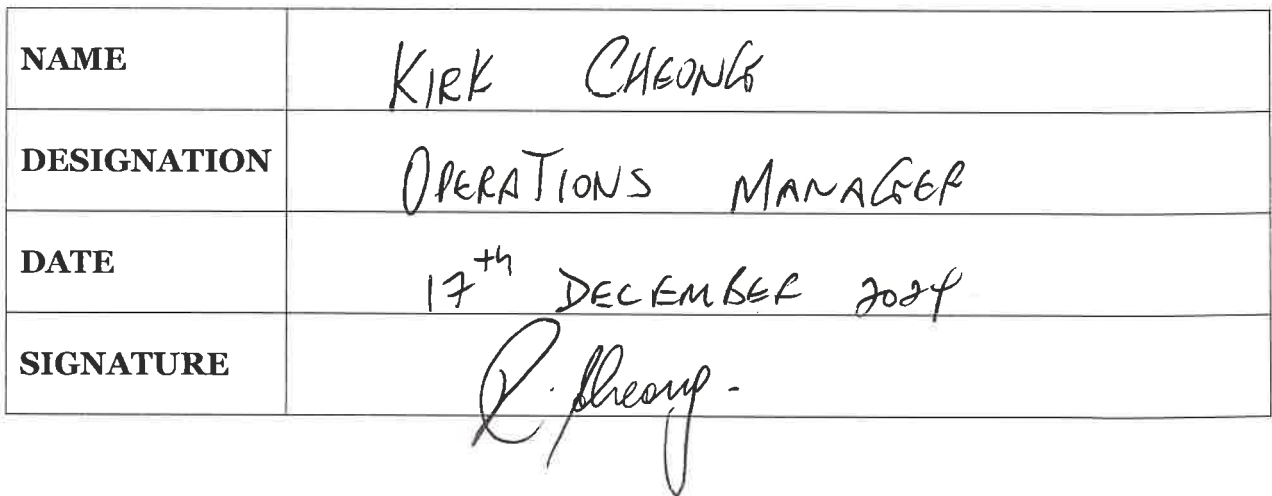 NAME KIRK CHEONG
DESIGNATION OPERATIONS MANAGER
DATE 17th DECEMBER 2024
SIGNATURE R. Cheong.